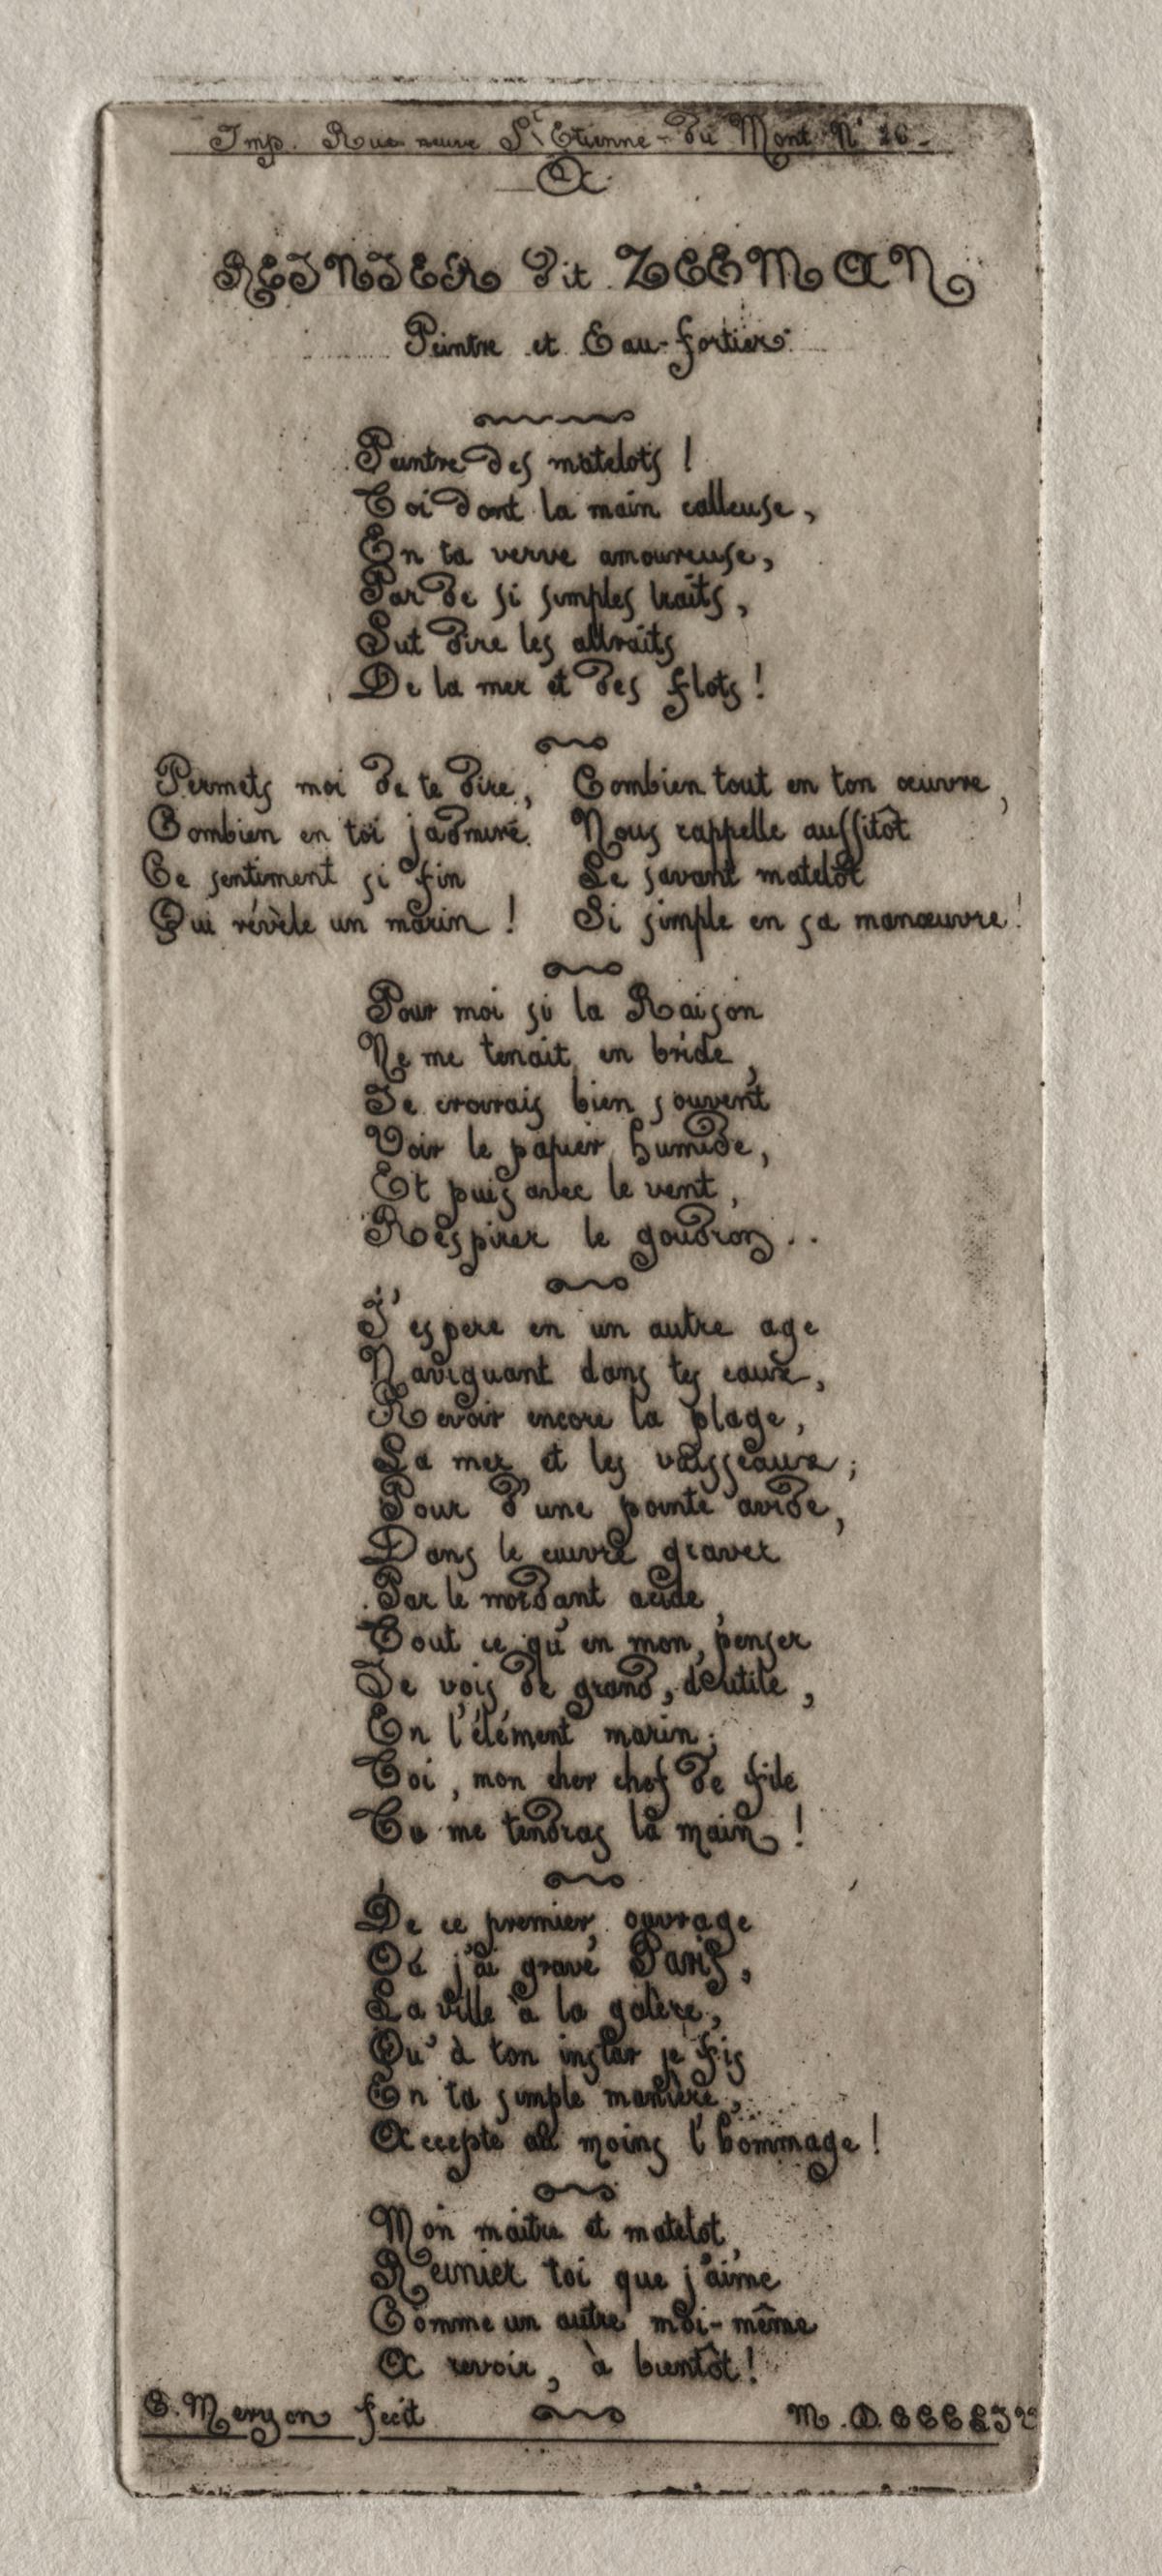 Imp. Rue neuve St Etienne-du Mont N° 26.
A
REINIER dit ZEEMAN
Peintre et Eau-fortier.
Peintre des matelots !
Toi dont la main calleuse,
En ta verve amoureuse,
Par de si simples traits,
Sut dire les attraits
De la mer et des flots !
Permets moi de te dire,
Combien en toi j'admire
Ce sentiment si fin
Qui révèle un marin !
Combien tout en ton œuvre,
Nous rappelle aussitôt
Le savant matelot
Si simple en sa manœuvre !
Pour moi si la Raison
Ne me tenait en bride,
Je croirais bien souvent
Voir le papier humide,
Et puis avec le vent,
Respirer le goudron..
J'espere en un autre age
Naviguant dans tes eaux,
Revoir encore la plage,
La mer et les vaisseaux;
Pour d'une pointe avide,
Dans le cuivre graver
Par le mordant acide,
Tout ce qu'en mon penser
Je vois de grand, d'utile,
En l'élément marin;
Toi, mon cher chef de file
Tu me tendras la main !
De ce premier ouvrage
Où j'ai gravé Paris,
La ville à la galère,
Qu'à ton instar je fis
En ta simple manière,
Accepte au moins l'hommage !
Mon maitre et matelot,
Reinier toi que j'aime
Comme un autre moi-même
A revoir, à bientôt !
C. Meryon fecit
M.D.CCCLIV